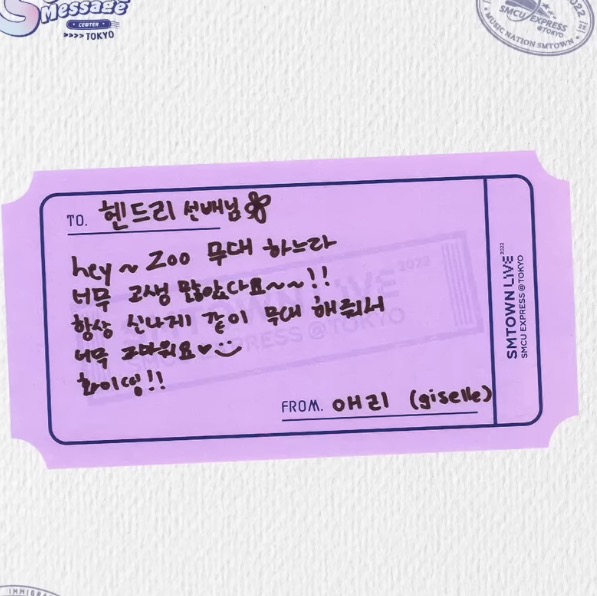 Message
CENTER
>>>> TOKYO
2022
SMCU EXPRESS
@TOKYO
MUSIC NATION SMTOWN
TO. 헨드리 선배님
hey ~ Zoo 무대 하느라
너무 고생 많았다요~~!!
항상 신나게 같이 무대 해줘서
너무 고마워요♥
화이팅!!
FROM. 애리 (giselle)
SMTOWN LIVE 2022
SMCU EXPRESS @TOKYO
SMTOWN LIVE 2022
SMCU EXPRESS @TOKYO